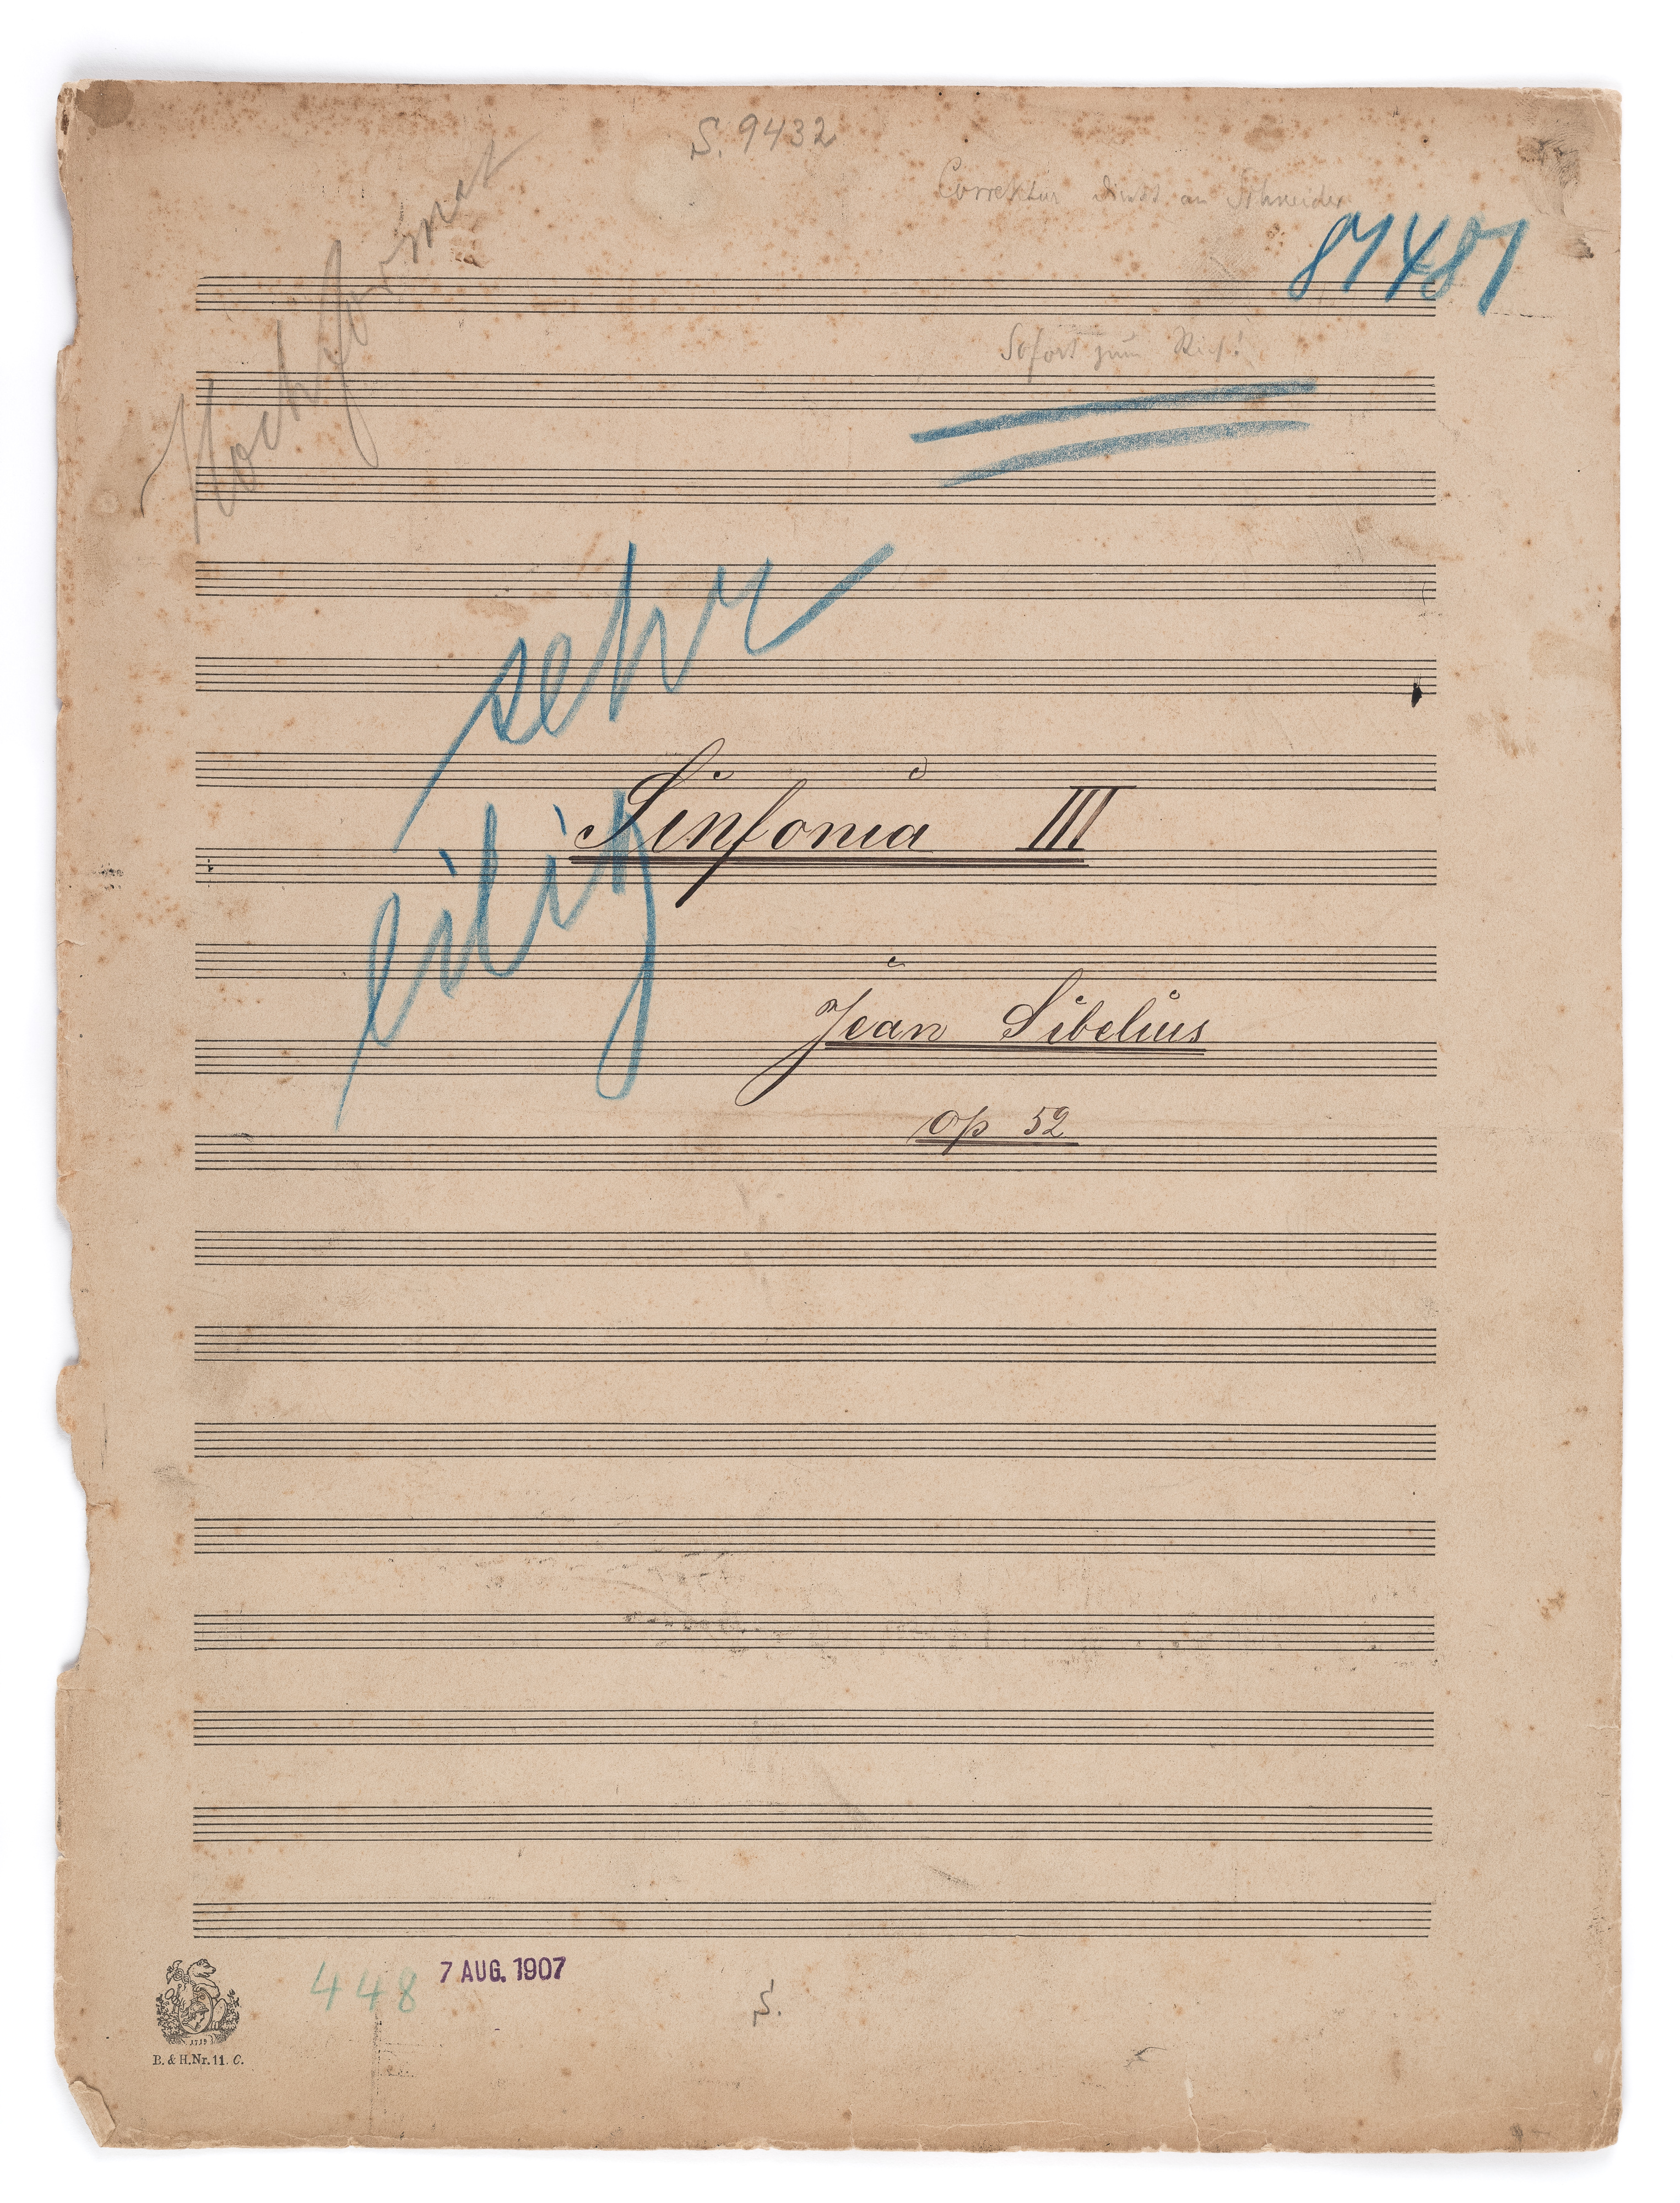 S. 9432
Correktur direkt an Schneider
Hochformat
Sofort zum Stich!
sehr
eilig
Sinfonia III
Jean Sibelius
op 52
448
7 AUG. 1907
S.
1719
B. & H. Nr. 11. C.